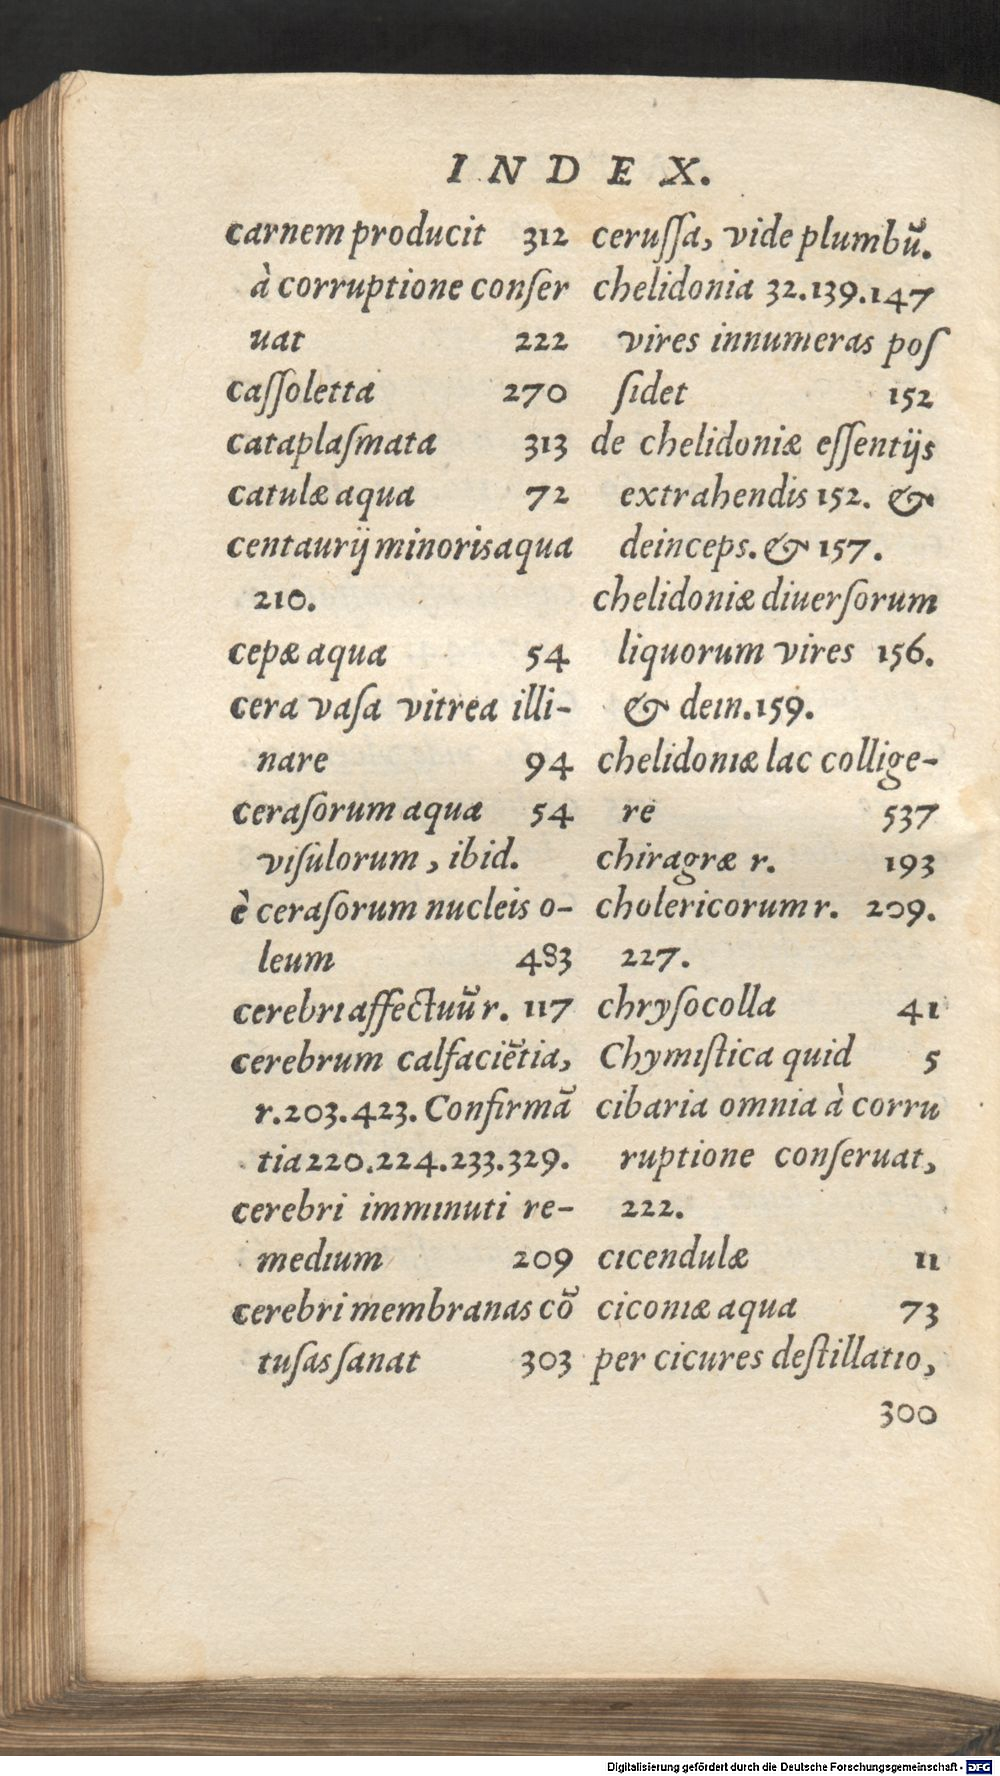 INDEX.
carnem producit 312
à corruptione conſer
uat 222
caſſoletta 270
cataplaſmata 313
catulæ aqua 72
centaurij minoris aqua
210.
cepæ aqua 54
cera vaſa vitrea illi-
nare 94
ceraſorum aqua 54
viſulorum, ibid.
è ceraſorum nucleis o-
leum 483
cerebri affectuũ r. 117
cerebrum calfaciẽtia,
r. 203. 423. Confirmã
tia 220. 224. 233. 329.
cerebri imminuti re-
medium 209
cerebri membranas cõ
tuſas ſanat 303
ceruſſa, vide plumbũ.
chelidonia 32. 139. 147
vires innumeras poſ
ſidet 152
de chelidoniæ eſſentijs
extrahendis 152. &
deinceps. & 157.
chelidoniæ diuerſorum
liquorum vires 156.
& dein. 159.
chelidoniæ lac collige-
re 537
chiragræ r. 193
cholericorum r. 209.
227.
chryſocolla 41
Chymiſtica quid 5
cibaria omnia à corru
ruptione conſeruat,
222.
cicendulæ 11
ciconiæ aqua 73
per cicures deſtillatio,
300
Digitalisierung gefördert durch die Deutsche Forschungsgemeinschaft - DFG